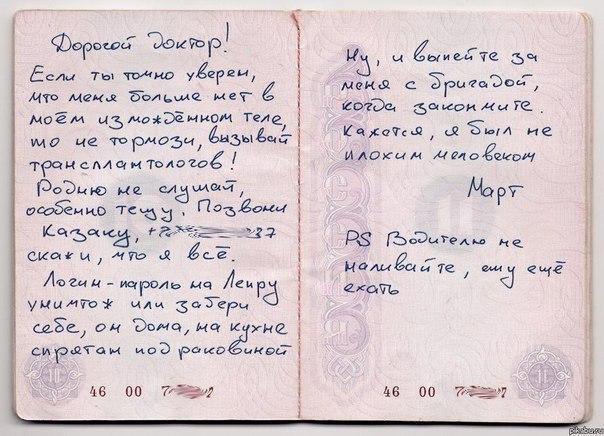 Дорогой доктор!
Если ты точно уверен,
что меня больше нет в
моём измождённом теле,
то не тормози, вызывай
трансплантологов!
Родню не слушай,
особенно тёщу. Позвони
Казаку, +7 37
скажи, что я всё.
Логин-пароль на Лепру
уничтожь или забери
себе, он дома, на кухне
спрятан под раковиной
46 00 7
Ну, и выпейте за
меня с бригадой,
когда закончите.
Кажется, я был не
плохим человеком
Март
PS Водителю не
наливайте, ему ещё
ехать
46 00 7
pikabu.ru